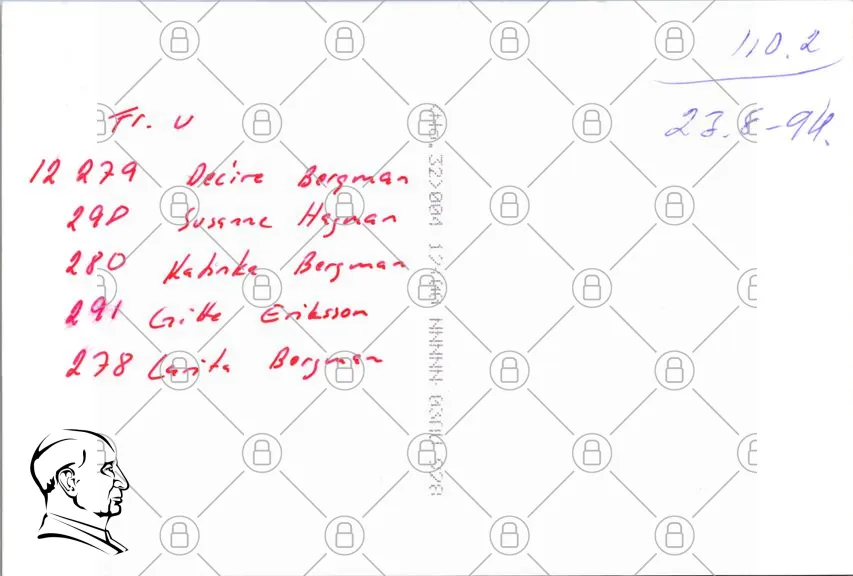 110.2
23.8-94.
Fr. v
12 279 Decire Bergman
290 Susanne Hagman
280 Katinka Bergman
291 Gitte Eriksson
278 Carita Bergman